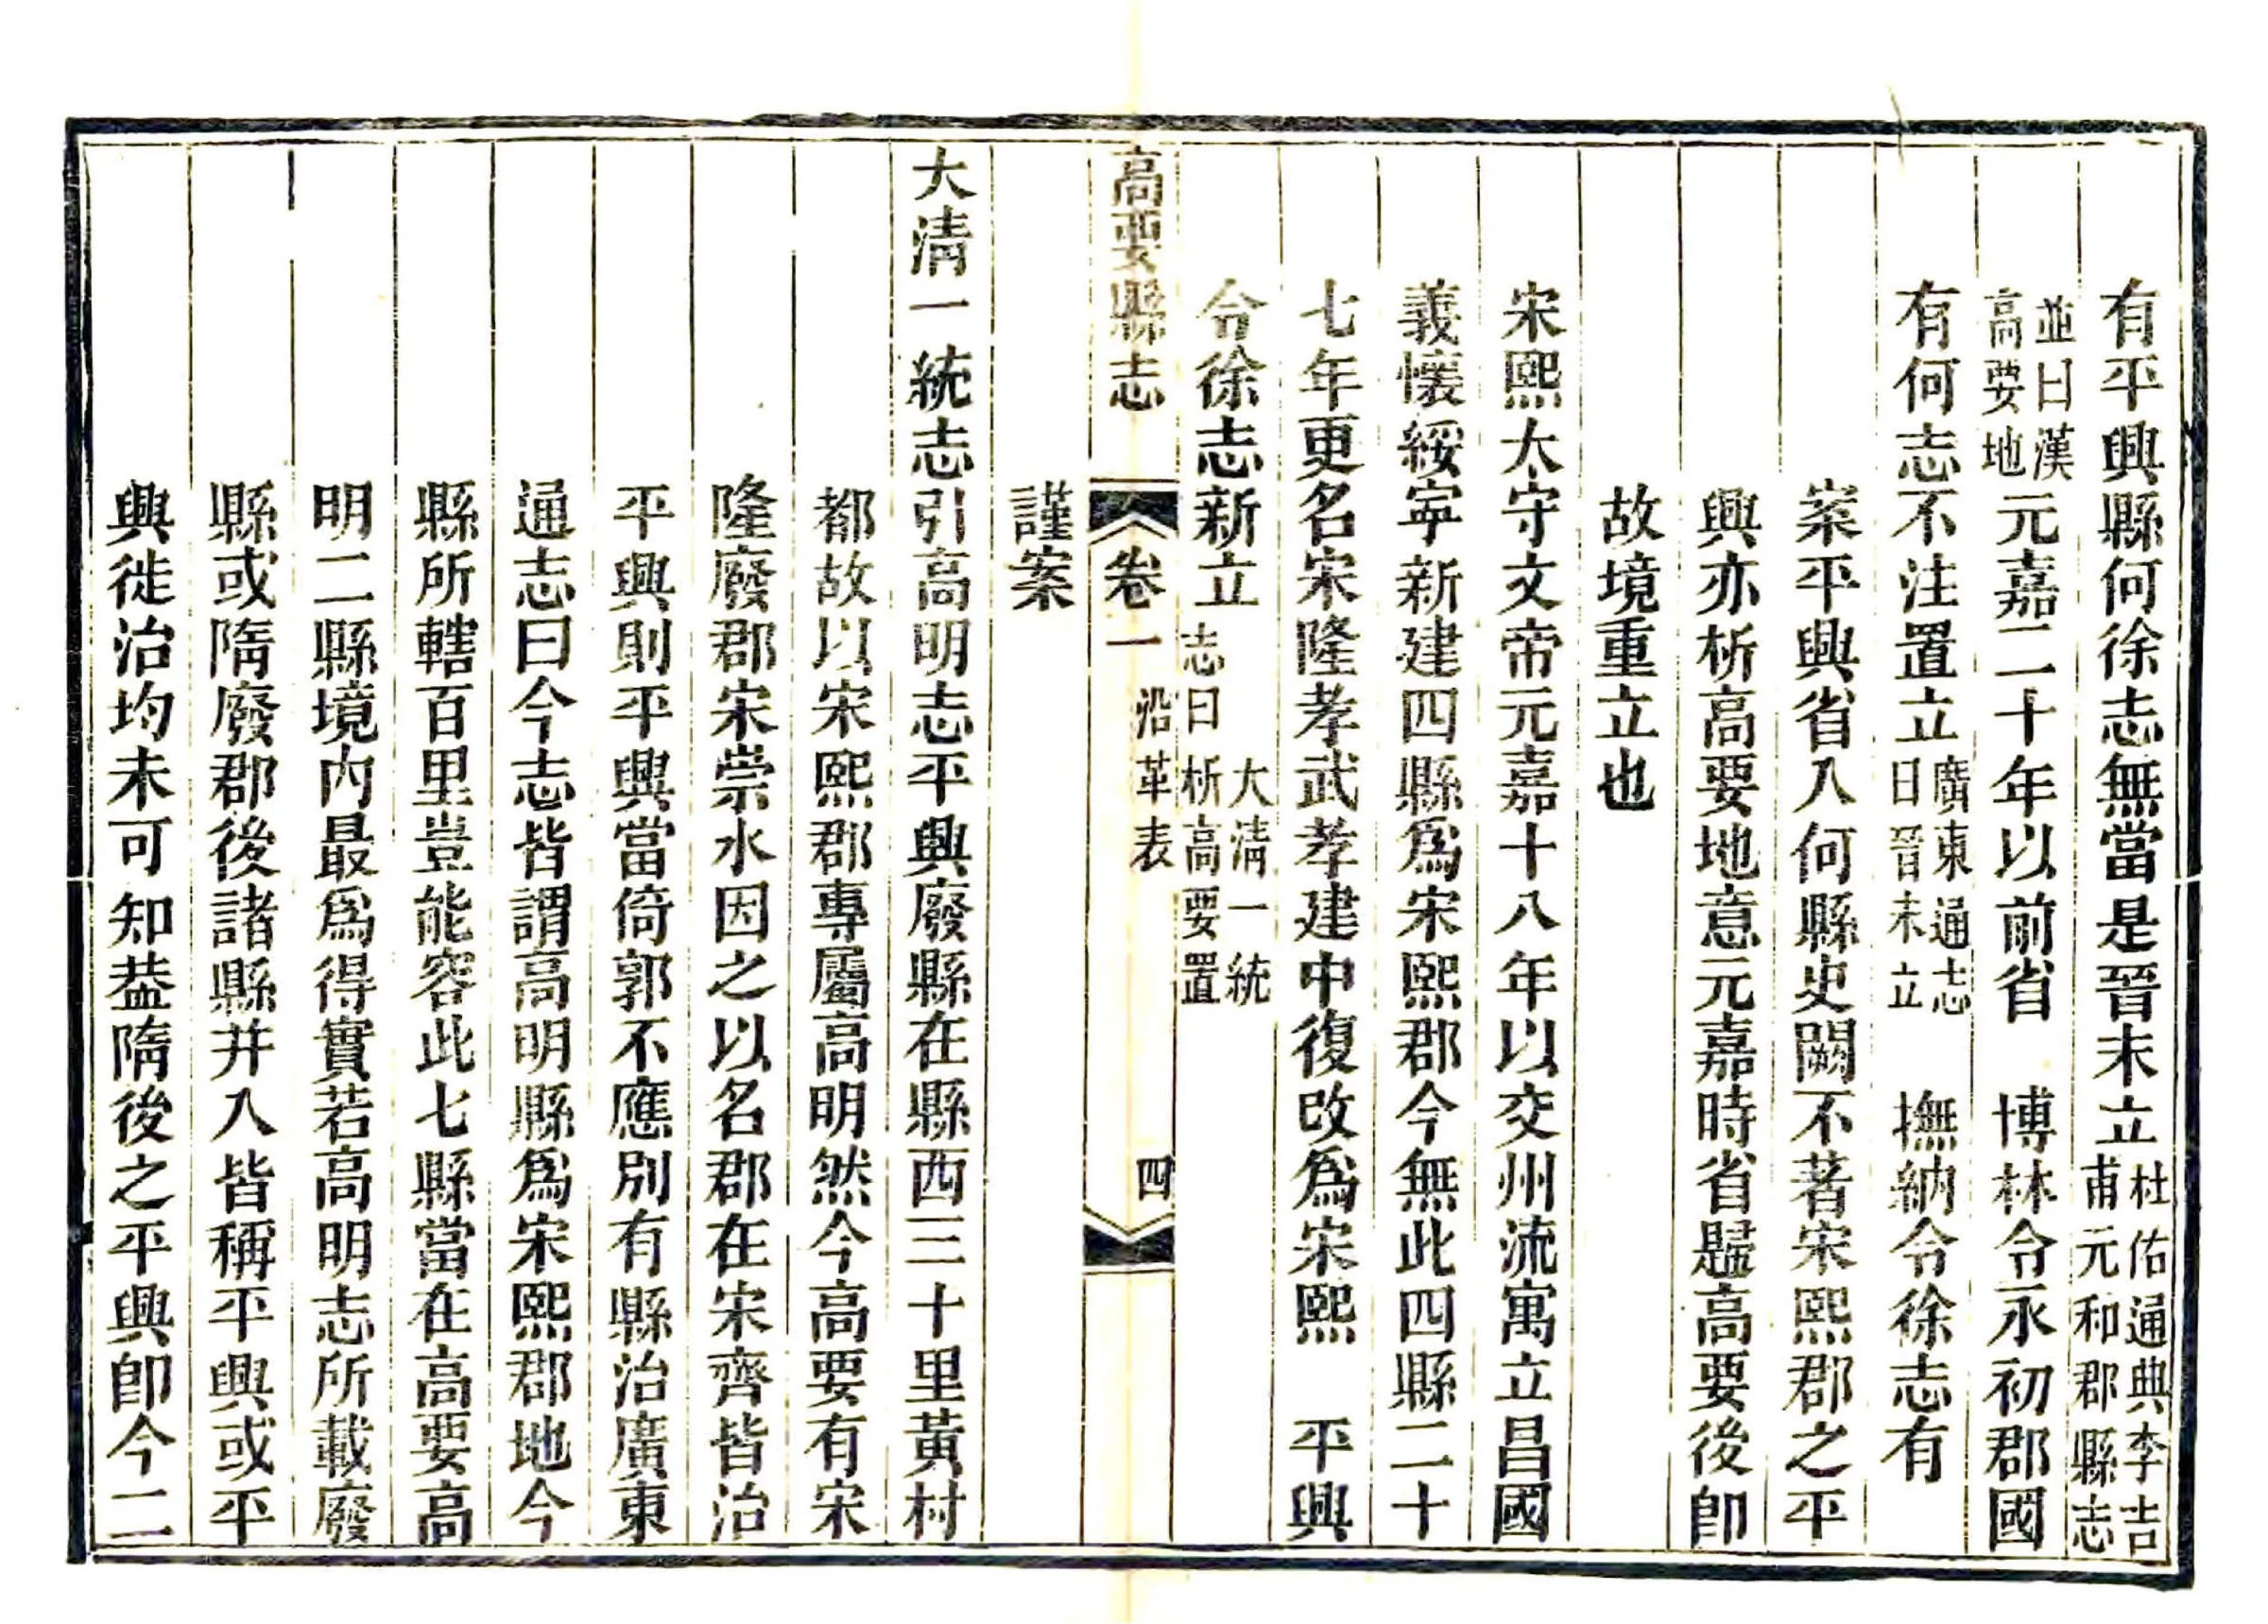 有平興縣何徐志無當是晉未立杜佑通典李吉甫元和郡縣志
並曰漢高要地元嘉二十年以前省　博林令永初郡國
有何志不注置立廣東通志曰晉未立　撫納令徐志有
案平興省入何縣史闕不著宋熙郡之平
興亦析高要地意元嘉時省歸高要後卽
故境重立也
宋熙太守文帝元嘉十八年以交州流寓立昌國
義懷綏寕新建四縣爲宋熙郡今無此四縣二十
七年更名宋隆孝武孝建中復改爲宋熙　平興
令徐志新立大清一統志曰析高要置
高要縣志　卷一　沿革表　四
謹案
大清一統志引高明志平興廢縣在縣西三十里黃村
都故以宋熙郡專屬高明然今高要有宋
隆廢郡宋崇水因之以名郡在宋齊皆治
平興則平興當倚郭不應別有縣治廣東
通志曰今志皆謂高明縣爲宋熙郡地今
縣所轄百里豈能容此七縣當在高要高
明二縣境內最爲得實若高明志所載廢
縣或隋廢郡後諸縣并入皆稱平興或平
興徙治均未可知葢隋後之平興卽今二